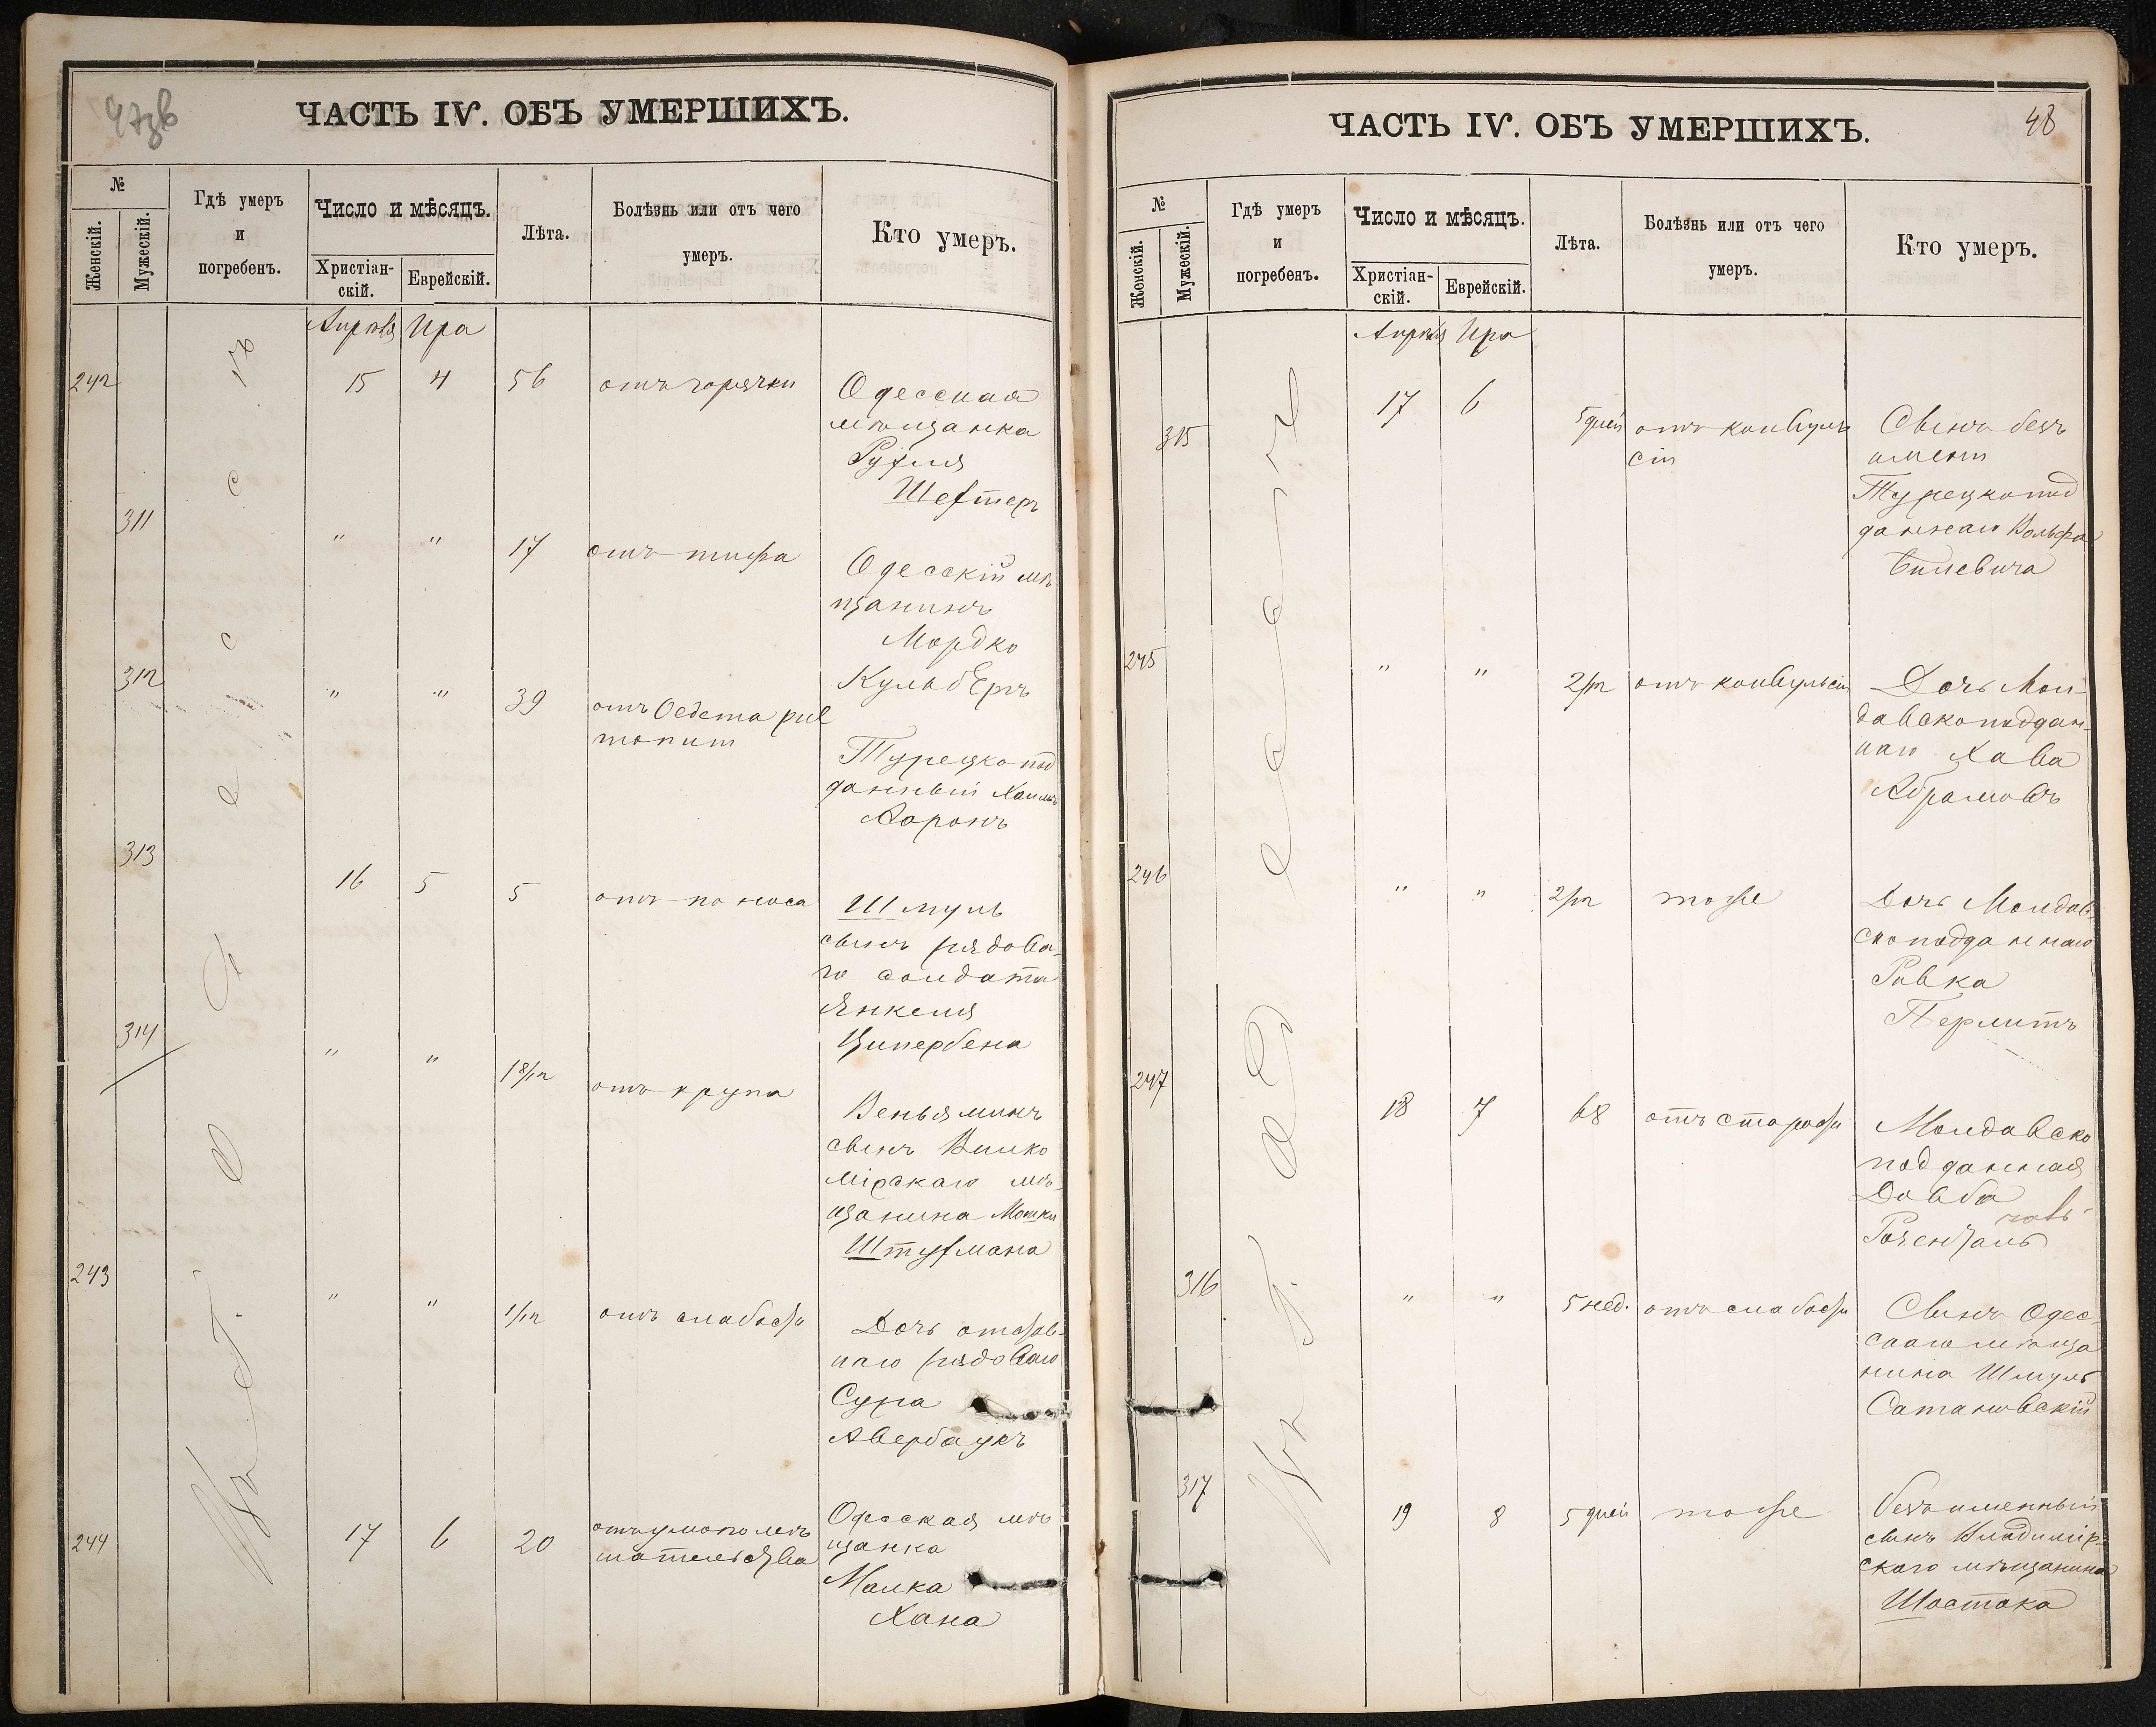 47зв
ЧАСТЬ IV. ОБЪ УМЕРШИХЪ.
№
Женскій.
Мужескій.
Гдѣ умеръ
и
погребенъ.
Число и мѣсяцъ.
Христіан-
скій.
Еврейскій.
Лѣта.
Болѣзнь или отъ чего
умеръ.
Кто умеръ.
Апрѣля Ира
Въ г. Одессѣ
242 15 4 56 отъ горячки
Одесская
мѣщанка
Рухля
Шехтеръ
311 " " 17 отъ тифа
Одесскій мѣ
щанинъ
Мордко
Кульбергъ
312 " " 39
Турецкопод
данный Хаимъ
Аронъ
313 16 5 5 отъ поноса
Шмуль
сынъ рядова-
го солдата
Янкеля
Ципербена
314 " " 1 8/12 отъ крупа
Веньяминъ
сынъ Вилко
мірскаго мѣ-
щанина Мошки
Штухмана
243 " " 1/12 отъ слабости
Дочь отстав-
наго рядоваго
Сура
Авербаухъ
244 17 6 20 отъ умопомѣ
шательства
Одесская мѣ
щанка
Малка
Хана
48
ЧАСТЬ IV. ОБЪ УМЕРШИХЪ.
№
Женскій.
Мужескій.
Гдѣ умеръ
и
погребенъ.
Число и мѣсяцъ.
Христіан-
скій.
Еврейскій.
Лѣта.
Болѣзнь или отъ чего
умеръ.
Кто умеръ.
Апрѣля Ира
Въ г. Одессѣ
315 17 6 5 дней отъ конвуль
сіи
Сынъ безъ
имени
Турецкопод
даннаго Вольфа
Билевича
245 " " 2/12 отъ конвульсіи
Дочь Мол-
давскоподдан-
наго Хава
Абрамовъ
246 " " 2/12 тоже
Дочь Молдав-
скоподданнаго
Ривка
Перлитъ
247 18 7 68 отъ старости
Молдавско
подданная
Довба
Розенталь
316 " " 5 нед. отъ слабости
Сынъ Одес-
скаго мѣща
нина Шмуль
Сатановскій
317 19 8 5 дней тоже
Безъименный
сынъ Владимір-
скаго мѣщанина
Шостака